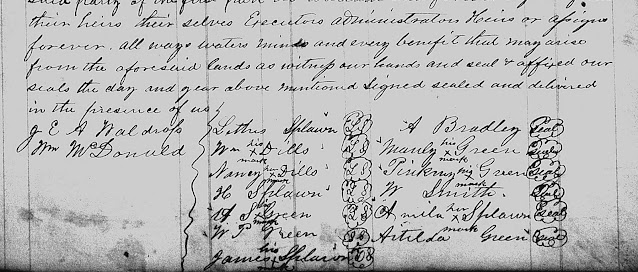 said party of the first part
their heirs their selves Executors administrators Heirs or assigns
forever. all ways waters minds and every benefit that may arise
from the aforesaid lands as witness our hands and seal & affixed our
seals the day and year above mentioned signed sealed and delivered
in the presence of us
J E A Waldrop Splawn LS A Bradley Seal
Wm McDonald Wm his x mark Dills LS Manly his x mark Green Seal
Nancy her x mark Dills LS Pinkny his x mark Green Seal
H Splawn LS W Smith Seal
his x mark Green LS Amila her x mark Splawn Seal
W P Green LS Green Seal
James his x mark Splawn LS